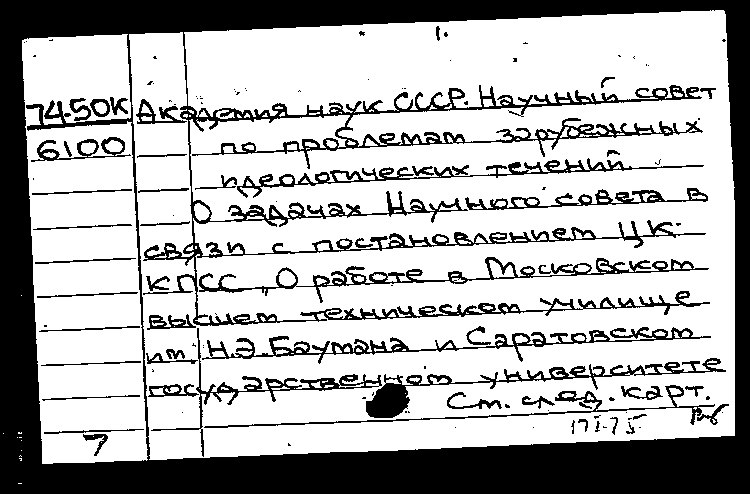 1.
74-50К Академия наук СССР. Научный совет
6100 по проблемам зарубежных
идеологических течений.
О задачах Научного совета в
связи с постановлением ЦК
КПСС „О работе в Московском
высшем техническом училище
им. Н.Э. Баумана и Саратовском
государственном университете
См. след. карт.
7